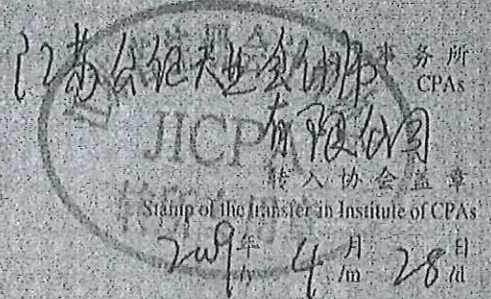 江苏公证天业会计师事务所
CPAs
有限公司
JICPA
转入协会盖章
Stamp of the transfer-in Institute of CPAs
2009年4月28日
/y /m /d